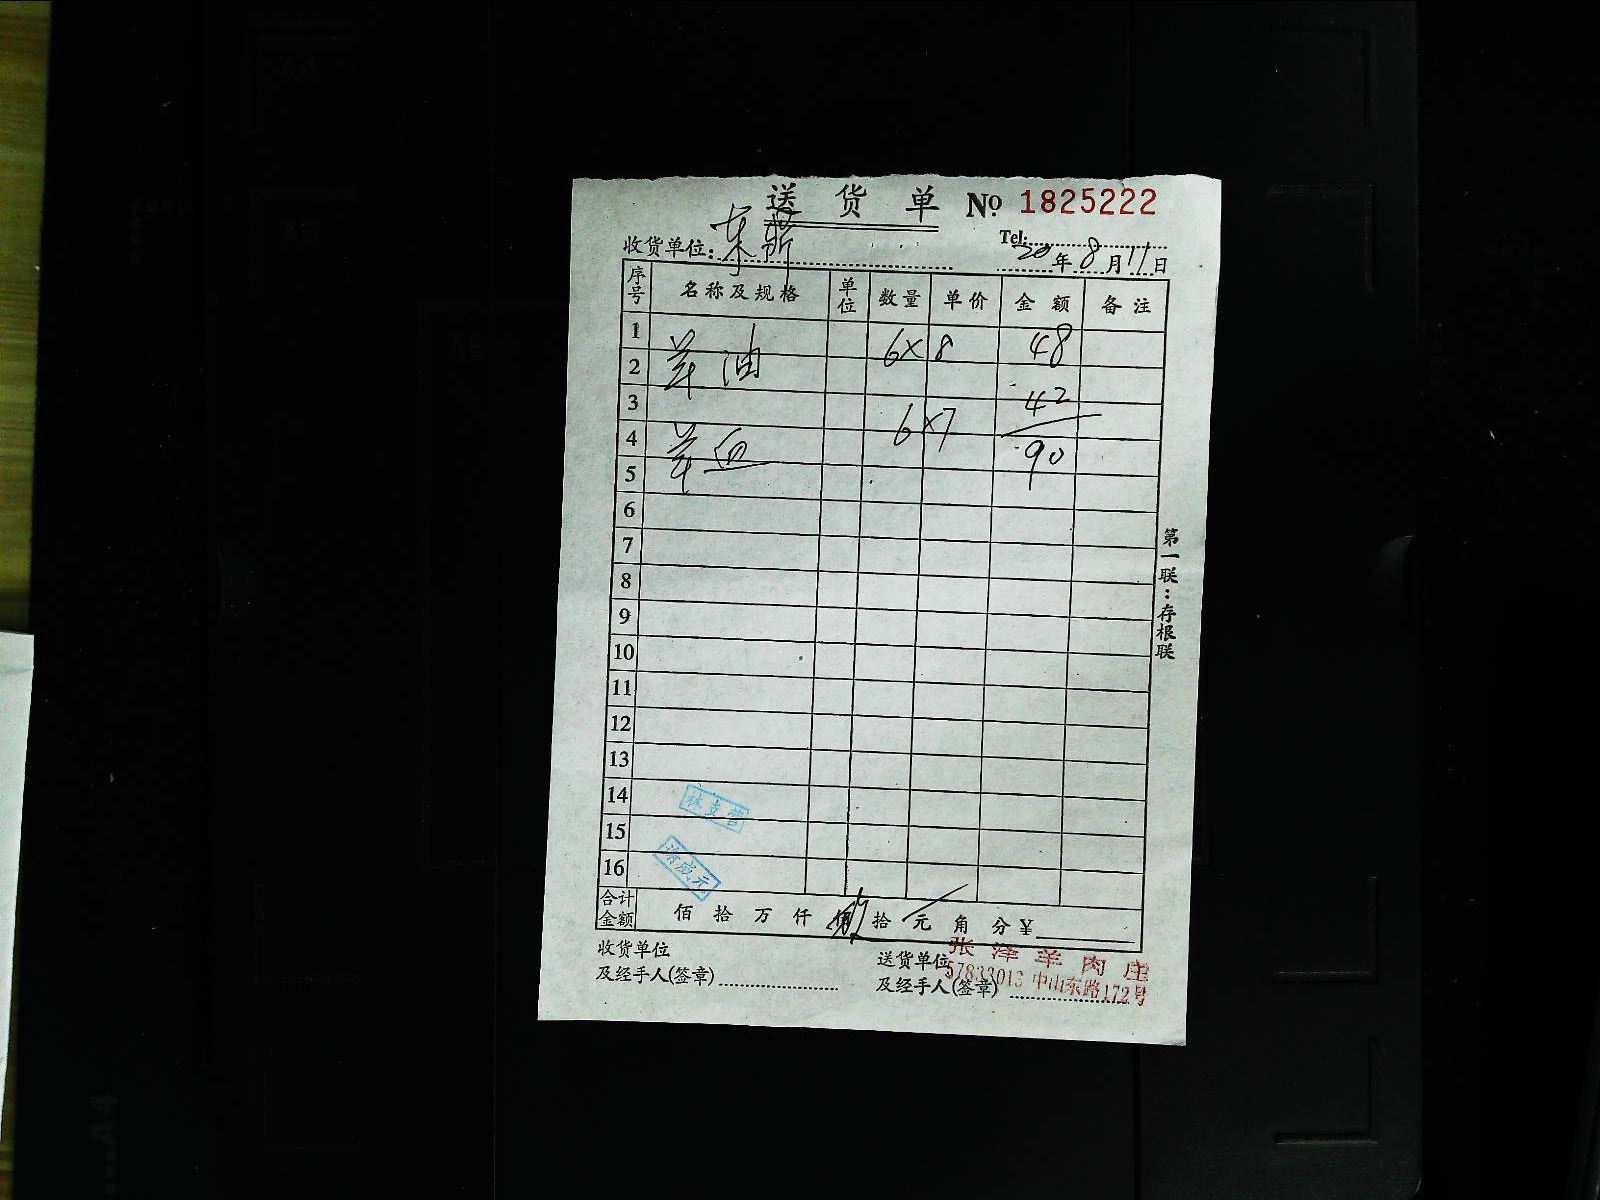 送 货 单 № 1825222
Tel:
收货单位: 20年8月11日
序号 名称及规格 单位 数量 单价 金额 备注
1 羊油 6×8 48
2
3 42
4 羊血 6×7 90
5
6
7
8
9
10
11
12
13
14
15
16
合计金额 佰 拾 万 仟 佰 拾 元 角 分 ¥
收货单位
及经手人(签章)
送货单位
及经手人(签章)
张泽羊肉庄
57833013 中山东路172号
第一联：存根联